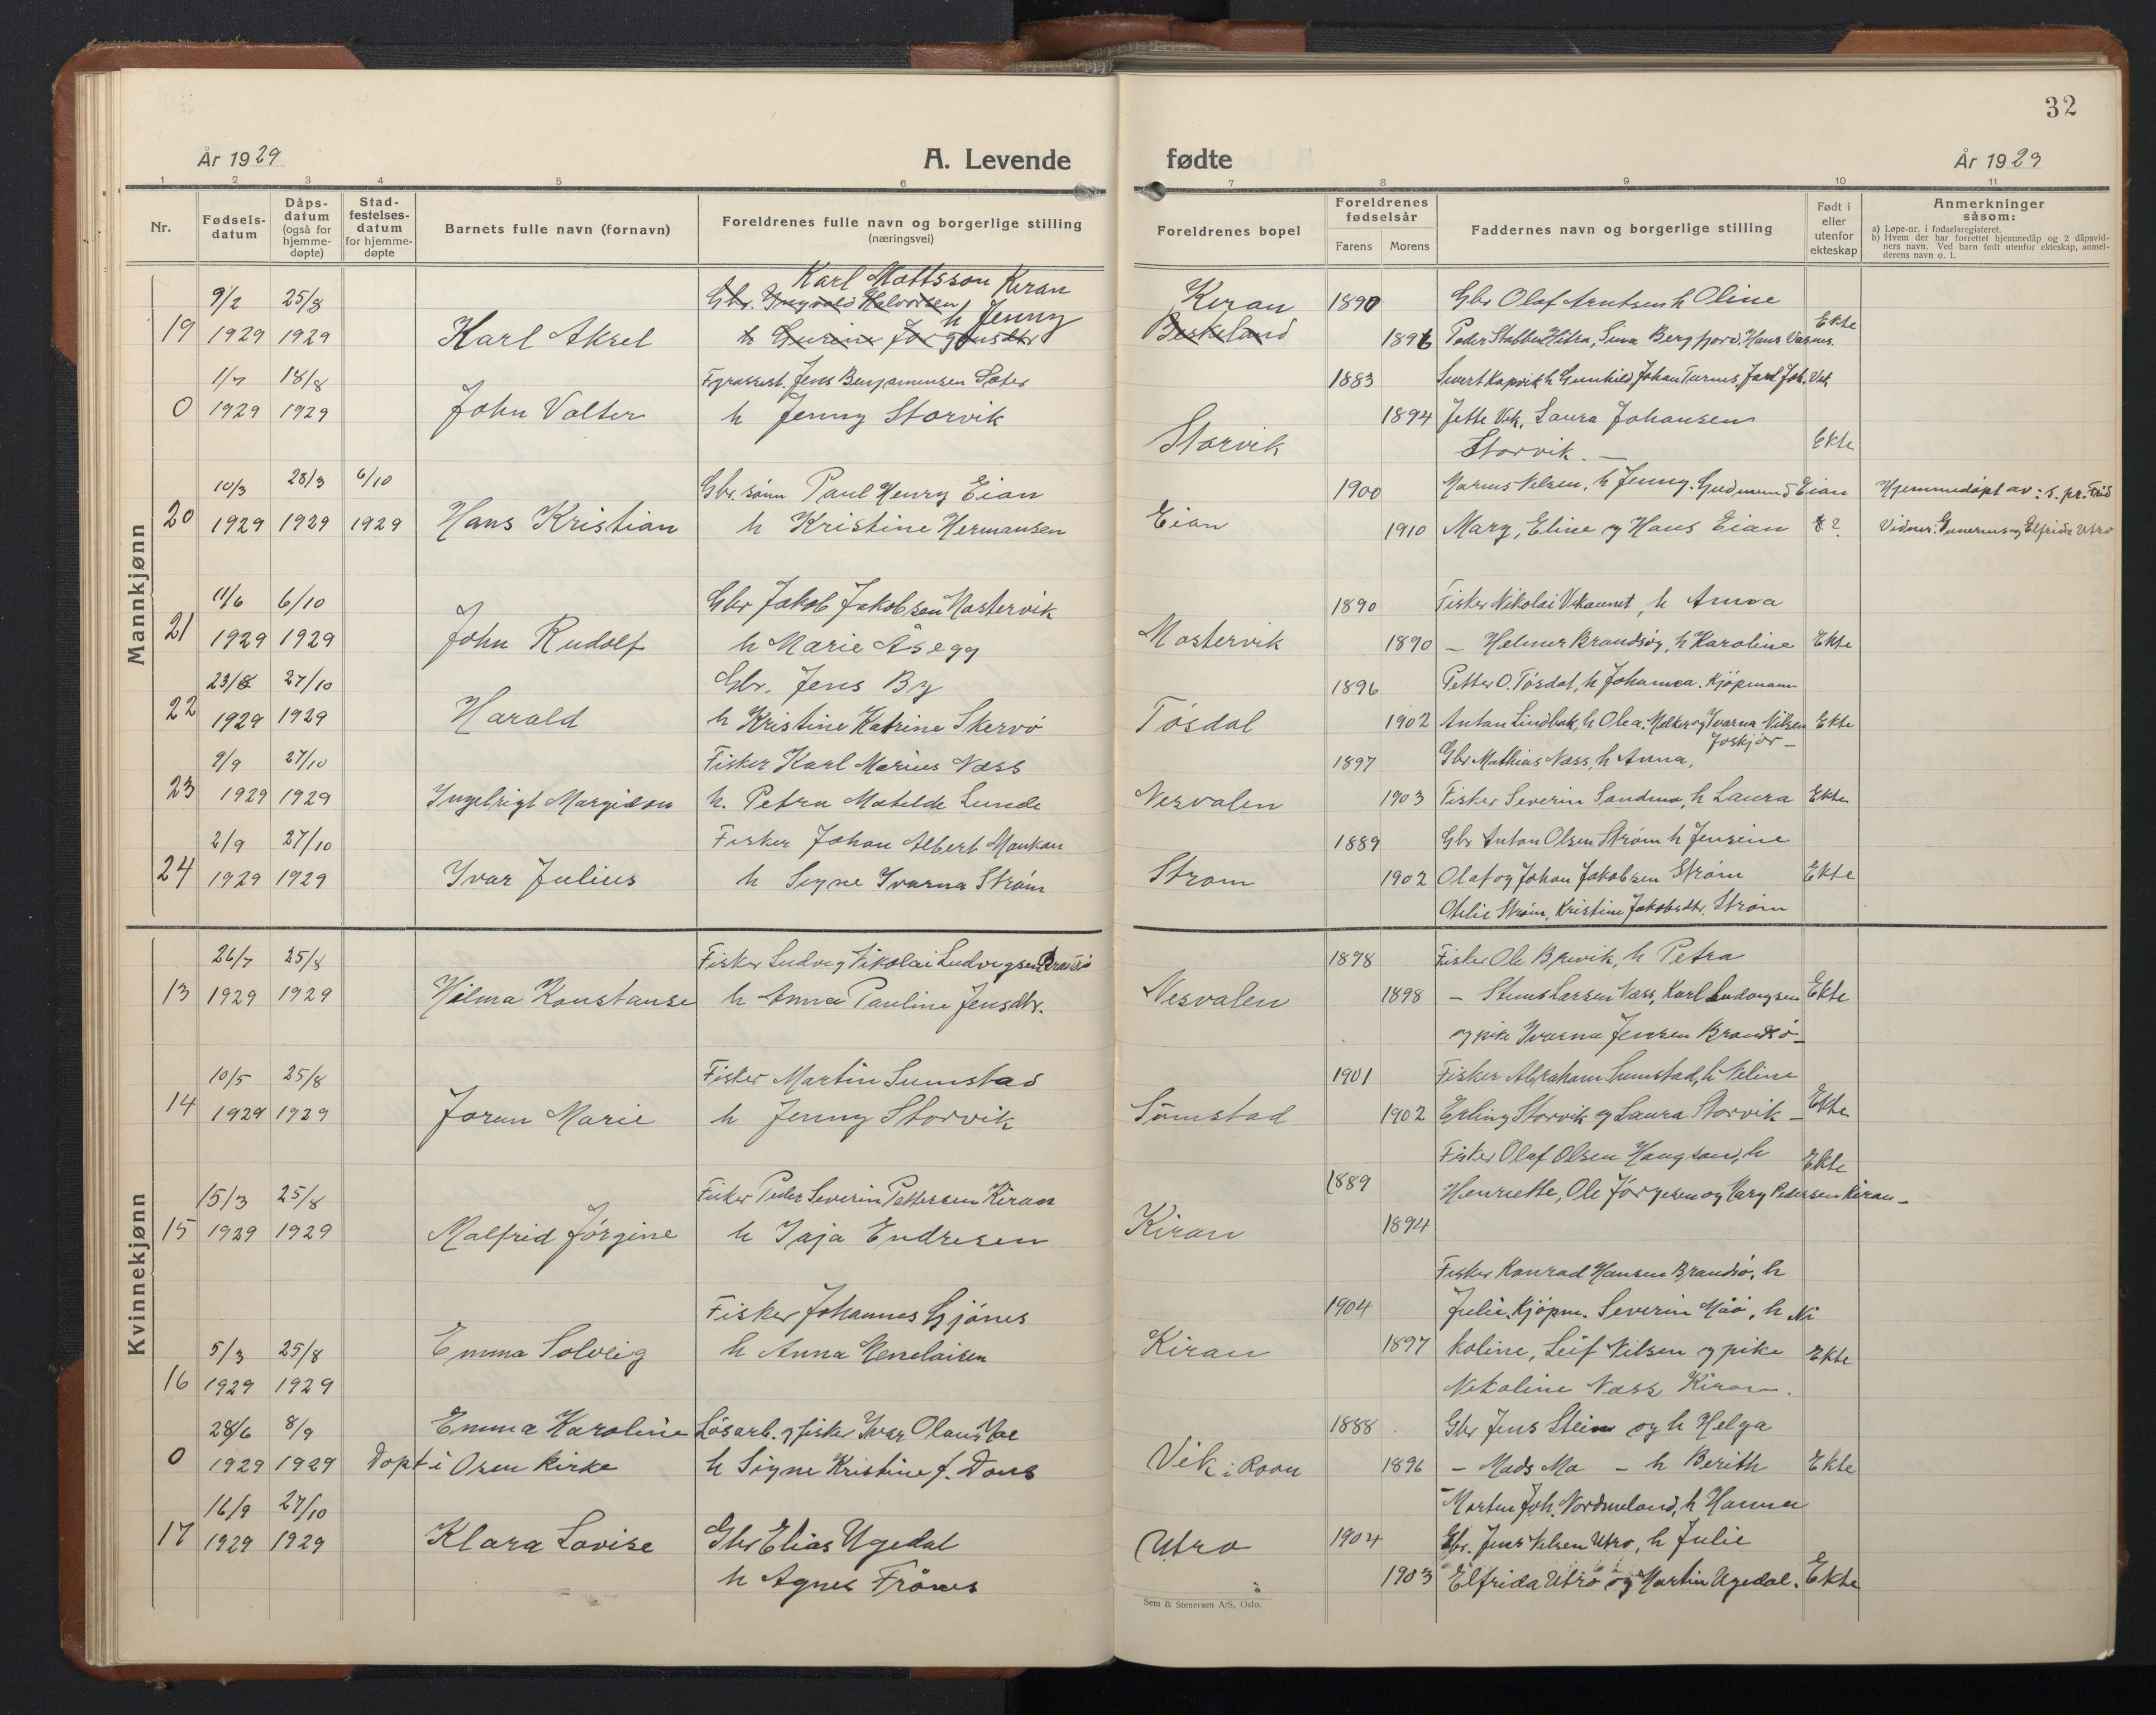 32
År 1929
A. Levende
fødte
År 1929
1 2 3 4 5 6 7 8 9 10 11
Nr.
Fødsels-
datum
Dåps-
datum
(også for
hjemme-
døpte)
Stad-
festelses-
datum
for hjemme-
døpte
Barnets fulle navn (fornavn)
Foreldrenes fulle navn og borgerlige stilling
(næringsvei)
Foreldrenes bopel
Foreldrenes
fødselsår
Farens Morens
Faddernes navn og borgerlige stilling
Født i
eller
utenfor
ekteskap
Anmerkninger
såsom:
a) Løpe-nr. i fødselsregisteret.
b) Hvem der har forrettet hjemmedåp og 2 dåpsvid-
ners navn. Ved barn født utenfor ekteskap, anmel-
derens navn o. l.
Mannkjønn
Karl Mattsson Kiran
9/2 25/8 Gbr. Ingvald Halvorsen Kiran 1890 Gbr Olaf Arntsen h Oline
h Jenny
19 1929 1929 Karl Aksel h Gurine Jørgensdtr Berkeland 1896 Peder Stabben Hitra, Sina Bergfjord, Hans Vasnes. Ekte
1/7 18/8 Fyrassist. Jens Benjaminsen Sæter 1883 Sivert Kapvik h Gunhild, Johan Turnes, Jarl Joh. Vik
0 1929 1929 John Valter h Jenny Storvik Storvik 1894 Jette Vik, Laura Johansen
Storvik. — Ekte
10/3 28/3 6/10 Gbr. sønn Paul Henry Eian 1900 Marius Nilsen, h Jenny. Gudmund Eian Hjemmedøpt av: s. pr.
20 1929 1929 1929 Hans Kristian h Kristine Hermansen Eian 1910 Mary, Eline og Hans Eian ? Vidner: og Elfrida Utro
11/6 6/10 Gbr Jakob Jakobsen Mastervik 1890 Fisker Nikolai Vikaunet, h Anna
21 1929 1929 John Rudolf h Marie Åsegg Mastervik 1890 — Helmer Brandsøy, h Karoline Ekte
23/8 27/10 Gbr. Jens By 1896 Petter O. Tøsdal, h Johanna. Kjøpmann
22 1929 1929 Harald h Kristine Katrine Skervø Tøsdal 1902 Anton Lindbak, h Olea. Melker og Ivarna Nilsen Ekte
9/9 27/10 Fisker Karl Marius Næss 1897 Gbr Mathias Næss, h Anna,
23 1929 1929 Ingebrigt Margidon h. Petra Matilde Lunde Nesvalen 1903 Fisker Severin Sandmo, h Laura Ekte
2/9 27/10 Fisker Johan Albert Monkan 1889 Gbr Anton Olsen Strøm h Jensine
24 1929 1929 Ivar Julius h Signe Ivarna Strøm Strøm 1902 Olaf og Johan Jakobsen Strøm Ekte
Otelie Strøm, Kristine Jakobsdtr. Strøm
Kvinnekjønn
26/7 25/8 Fisker Ludvig Nikolai Ludvigsen Brandsø 1898 Fisker Ole Brevik, h Petra
13 1929 1929 Hilma Konstanse h Anna Pauline Jensdtr. Nesvalen 1898 — Larsen Næss, Karl Ludvigsen Ekte
og pike Ivarna Jensen Brandsø —
10/5 25/8 Fisker Martin Sumstad 1901 Fisker Abraham Sumstad, h Neline
14 1929 1929 Jorun Marie h Jenny Storvik Sumstad 1902 Erling Storvik og Laura Storvik — Ekte
Fisker Olaf Olsen Haugsand, h Ekte
15/3 25/8 Fisker Peder Severin Pettersen Kiran 1889 Henriette, Ole Jørgesen og Mary Pedersen Kiran —
15 1929 1929 Malfrid Jørgine h Jaja Endresen Kiran 1894
Fisker Konrad Hansen Brandsø, h
Fisker Johannes Gjønes 1904 Julie. Kjøpm. Severin Måø, h Ni
5/3 25/8 Emma Solveig h Anna Kiran 1897 koline, Leif Nilsen og pike Ekte
16 1929 1929 Nikoline Næss Kiran.
28/6 8/9 Emma Karoline Løsarb. og fisker Ivar Olaus Moe 1888 Gbr Jens Stein og h Helga
0 1929 1929 Døpt i Osen kirke h Signe Kristine f. Dons Vik i Roan 1896 — Mads Mo — h Berith Ekte
16/9 27/10 — Morten Joh. Nordmeland, h Hanna
17 1929 1929 Klara Lovise Gbr Elias Ugedal Utro 1904 Gbr. Jens Nilsen Utro, h Julie
h Agnes Frønes 1903 Elfrida Utro og Martin Ugedal. Ekte
Sem & Stenersen A/S, Oslo.